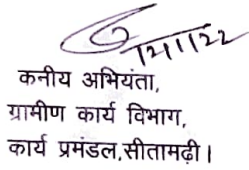 12/11/22
कनीय अभियंता,
ग्रामीण कार्य विभाग,
कार्य प्रमंडल,सीतामढ़ी।